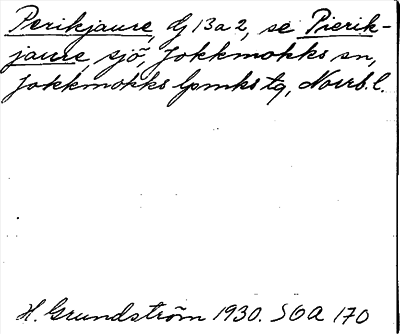 Perikjaure, Gj 13a2, se Pierik-
jaure, sjö, Jokkmokks sn,
Jokkmokks lpmks tg, Norrb. l.
H. Grundström 1930. SOA 170